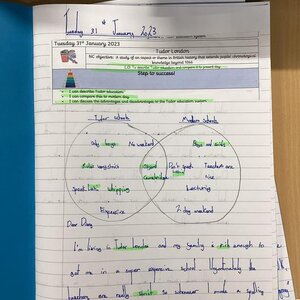 Tuesday 31st January 2023
Tuesday 31st January 2023
Tudor London
NC objective: A study of an aspect or theme in British history that extends pupils' chronological knowledge beyond 1066
L.O: To describe Tudor education and compare it to present day.
Step to success!
I can describe Tudor education.
I can compare this to modern day.
I can discuss the advantages and disadvantages to the Tudor education system.
Tudor Schools
Modern Schools
Only boys
No weekend
Boys and Girls
Don't speak Latin
Teachers are nice
Speak Latin
whipping
Lecturing
Expensive
2 day weekend
Dear Diary,
I'm living in Tudor London and my family is rich enough to
get me in a super expensive school. Unfortunately the
teachers are really strict so whenever I make a spelling